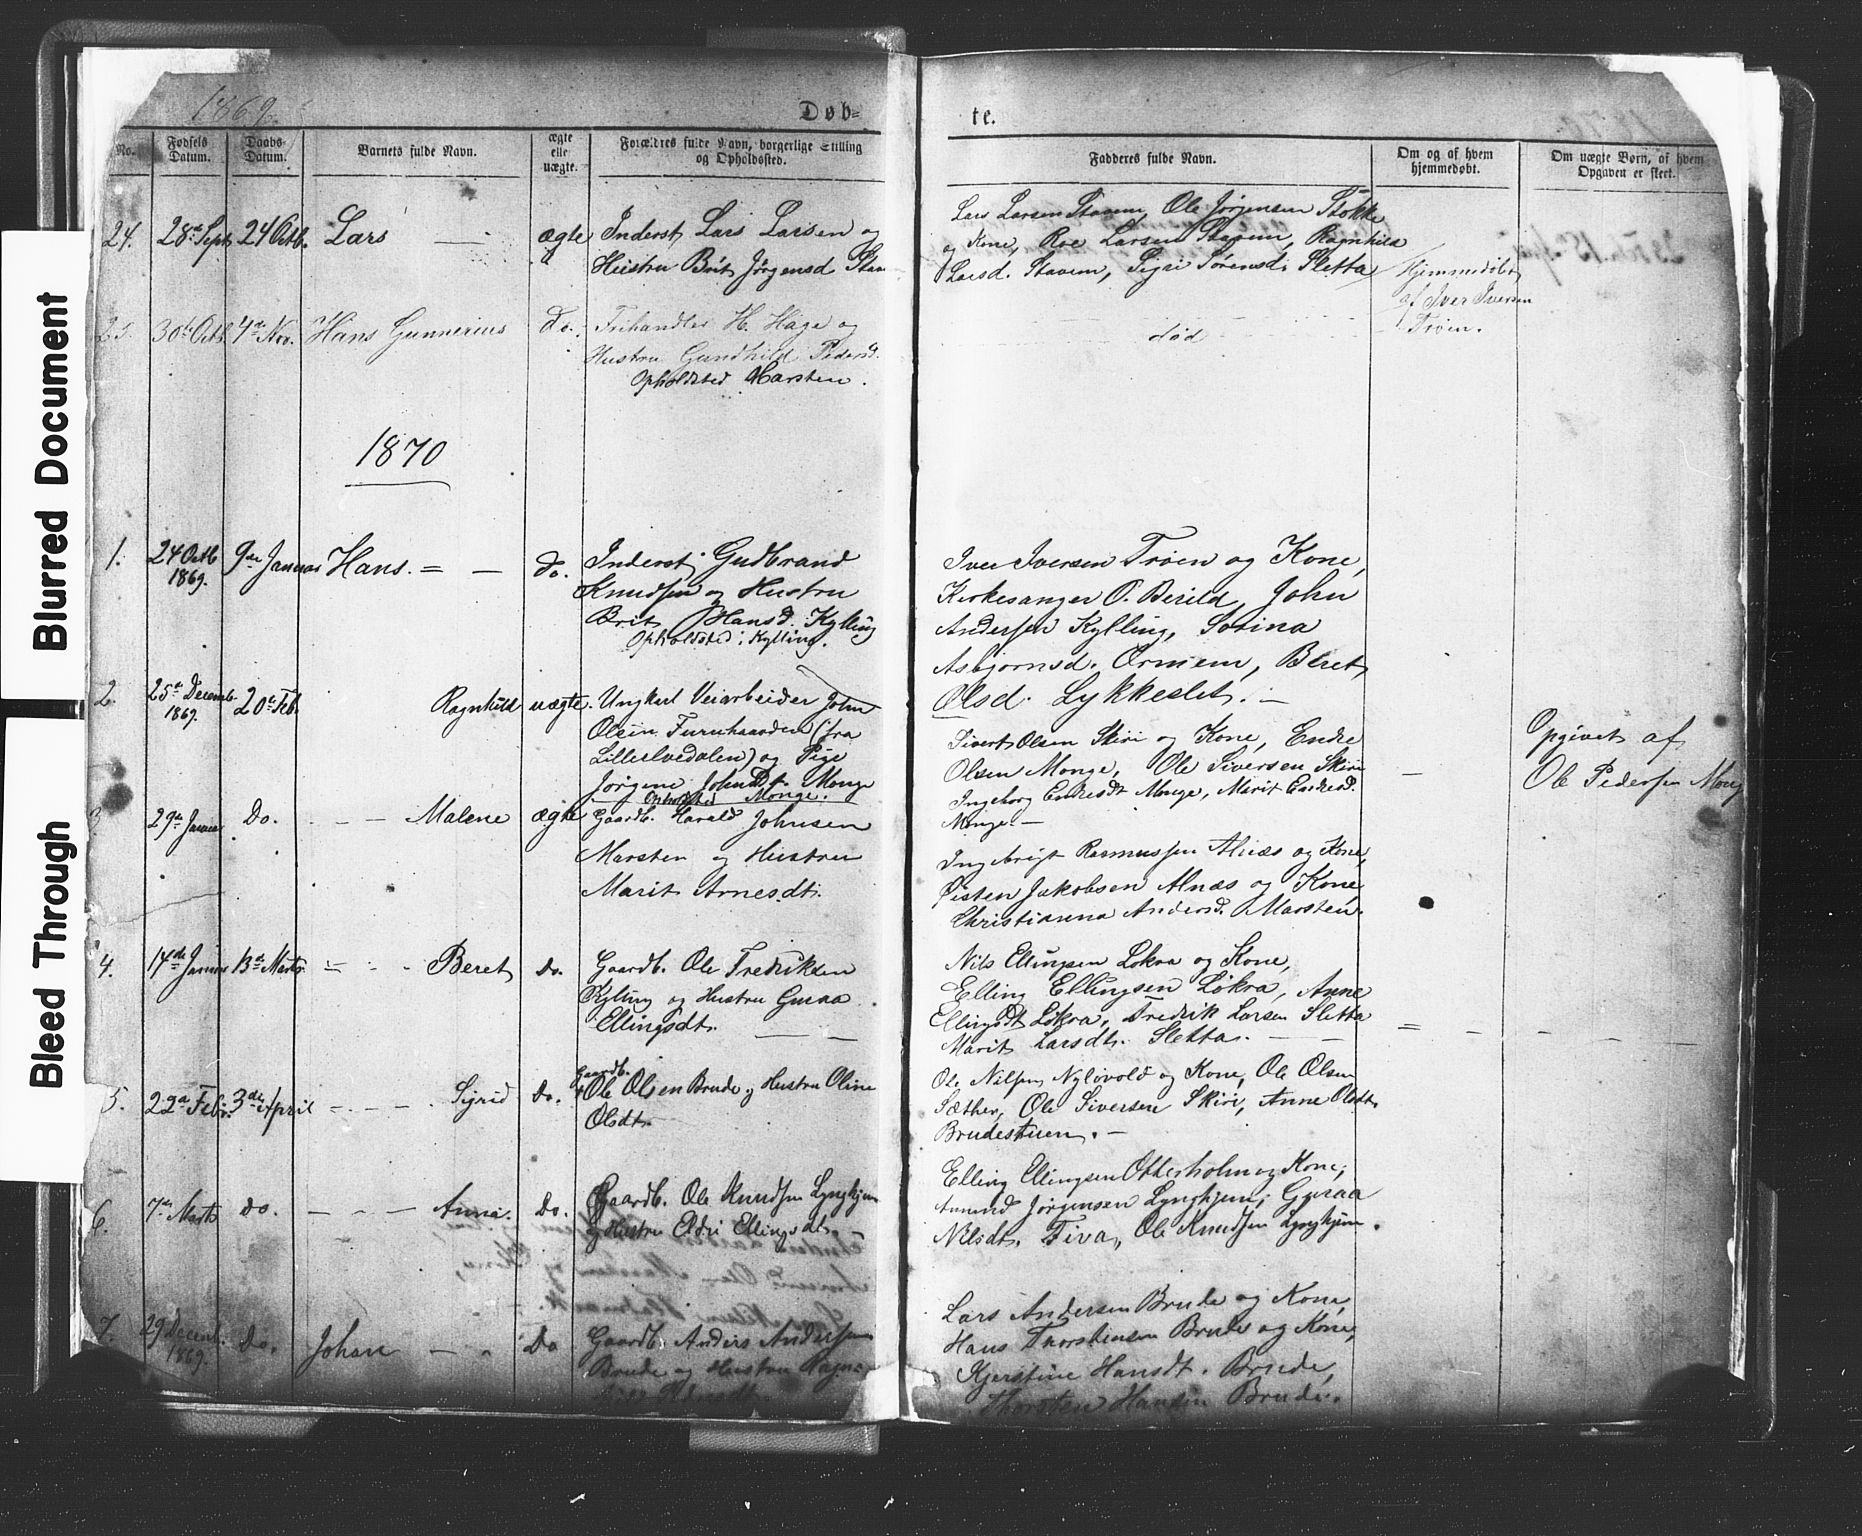 Blurred Document
Bleed Through
1869.
Døb=
te.
No.
Fødsels Datum.
Daabs= Datum.
Barnets fulde Navn.
ægte elle uægte.
Forældres fulde Navn, borgerlige Stilling og Opholdsted.
Fadderes fulde Navn.
Om og af hvem hjemmedøbt.
Om uægte Børn, af hvem Opgaven er skeet.
24. 28de Sept 24 Octb. Lars — ægte
Inderst Lars Larsen og
Hustru Brit Jørgensd Stav
Lars Larsen Stavem, Ole Jørgensen Stokke
og Kone, Roe Larsen Stavem, Ragnhild
Larsd. Stavem, Sigri Sørensd. Sletta
25. 30te Octb. 4de Nov. Hans Gunnerius Do.
Frihandler H. Hage og
Hustru Gundhild Pedersd.
Opholdsted Marsten.
død
Hjemmedøbt
af Iver Iversen
Trøen.
1870
1. 24 Octb 1869. 9de Januar Hans. = — do.
Inderst Gudbrand
Knudsen og Hustru
Brit Hansd. Kylling
Opholdsted: Kylling.
Iver Iversen Trøen og Kone,
Kirkesanger O. Berild, John
Andersen Kylling, Sorina
Asbjørnsd. Ormem, Beret
Olsd. Lykkeslet. —
2. 25de Decemb. 1869. 20de Feb. Ragnhild uægte.
Ungkarl Veiarbeider John
Olsen Furuhaavden (fra
Lilleelvedalen) og Pige
Jørgine Johnsdt. Monge
Opholdsted Monge.
Sivert Olsen Skiri og Kone, Endre
Olsen Monge, Ole Siversen Skiri
Ingeborg Endresdt Monge, Marit Endresd.
Monge. —
Opgivet af
Ole Pedersen Mong
3. 29de Januar Do. - - - Malene ægte
Gaardb. Harald Johnsen
Marsten og Hustru
Marit Arnesdt.
Ingebrigt Rasmussen Alnæs og Kone,
Øisten Jakobsen Alnæs og Kone,
Christianna Andersd. Marsten.
4. 14de Januar 13de Marts - - - Beret Do.
Gaardb. Ole Fredriksen
Kylling og Hustru Guraa
Ellingsdt.
Nils Ellingsen Løkra og Kone,
Elling Ellingsen Løkra, Anne
Ellingsdt Løkra, Fredrik Larsen Sletta
Marit Larsdt. Sletta.
5. 22de Febr. 3de April - - - Sigrid Do.
Gaardb.
Ole Olsen Brude og Hustru Oline
Olsdt.
Ole Nilsen Nyløvold og Kone, Ole Olsen
Sæther, Ole Siversen Skiri, Anne Olsdt.
Brudestuen. —
6. 7de Marts Do. - - - Anna. Do.
Gaardb. Ole Knudsen Lynghjem
og Hustru Eldri Ellingsdt.
Elling Ellingsen Otterholm og Kone,
Amund Jørgensen Lynghjem, Guraa
Nilsdt. Fiva, Ole Knudsen Lynghjem.
7. 29 Decemb. 1869. Do. Johan — - Do
Gaardb. Anders Andersen
Brude og Hustru Ragn=
Lars Andersen Brude og Kone,
Hans Thorstensen Brude og Kone,
Kjerstine Hansdt. Brude,
Thorsten Hansen Brude.